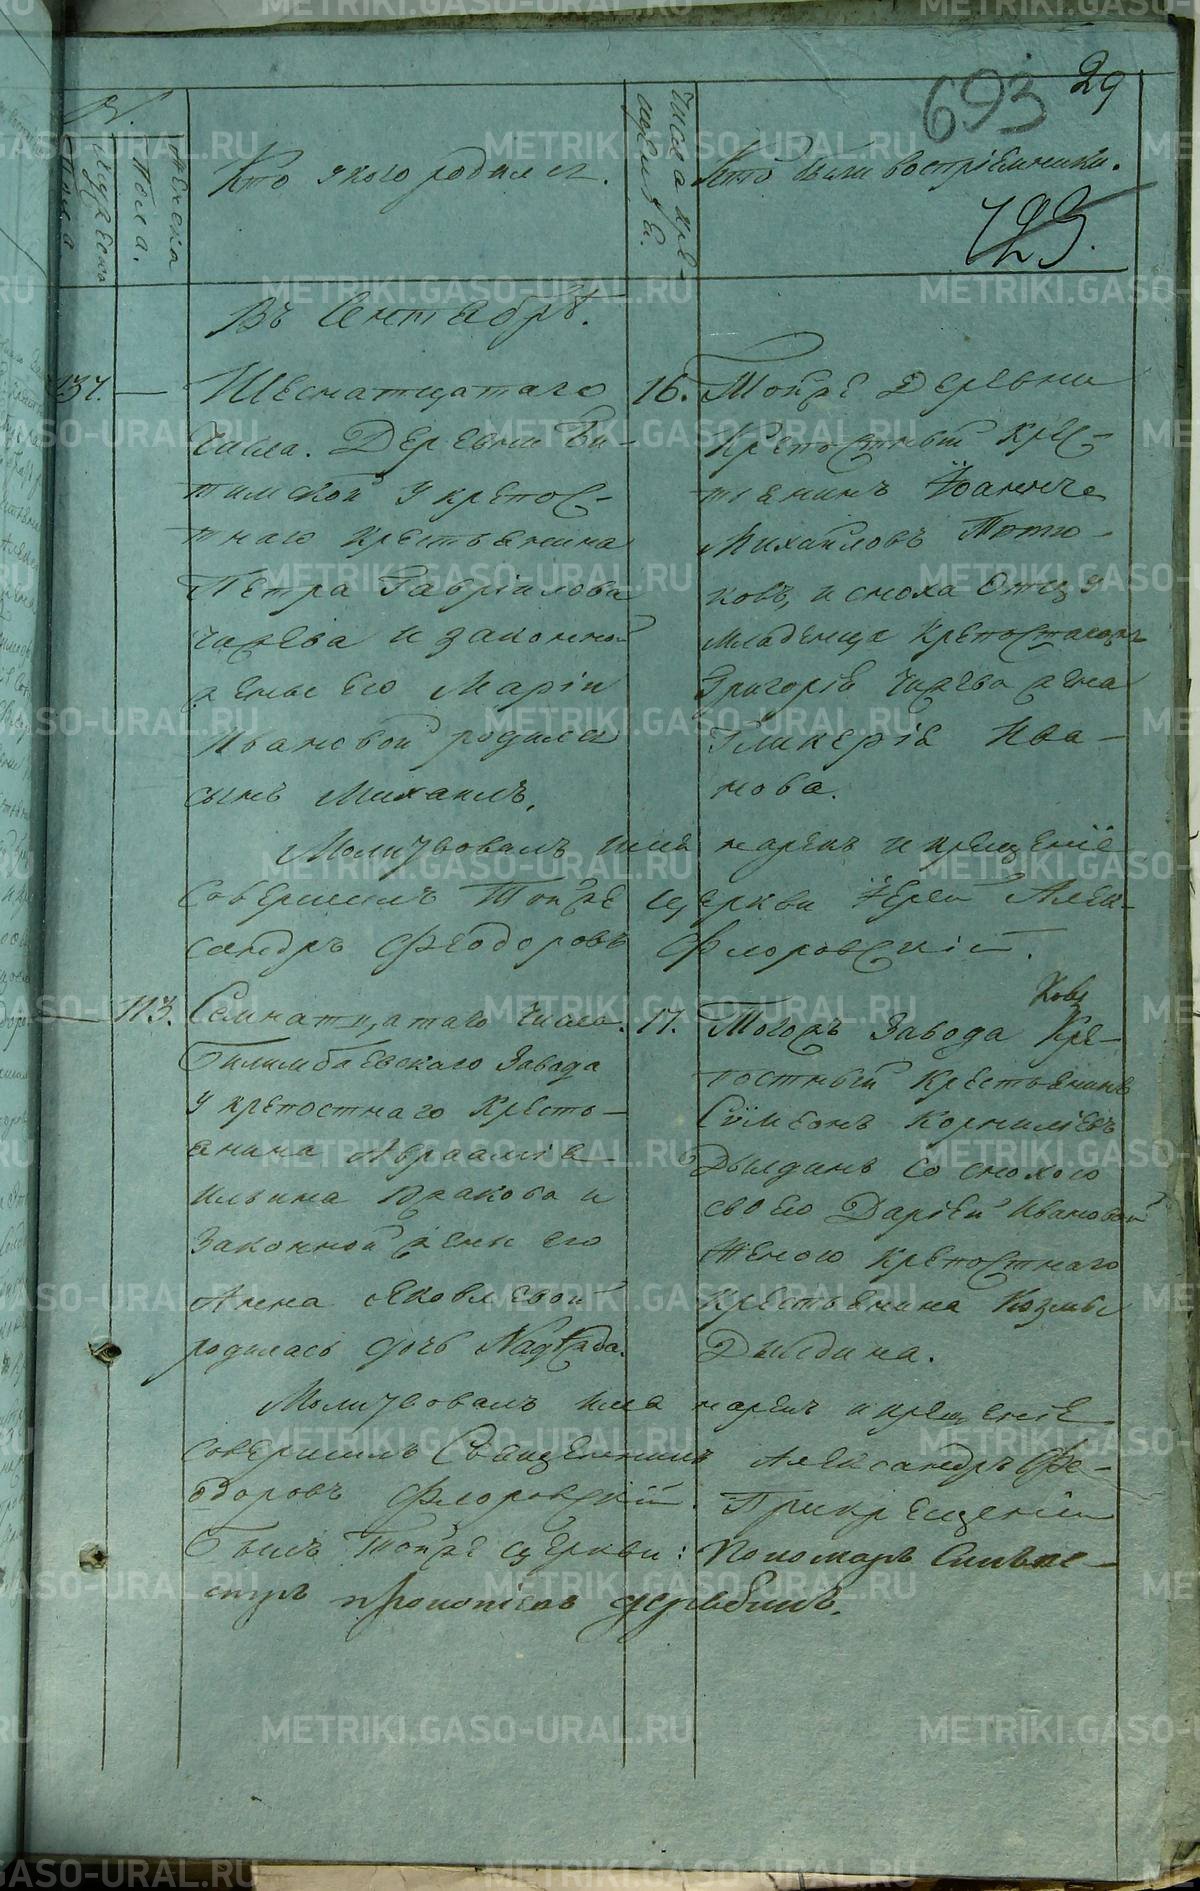 693 29
№.
Мужеска пола
Женска пола.
Кто у кого родился.
Числа крещенія.
Кто были воспріемники.
123.
Въ Сентябрѣ.
137. — Шеснатцатаго
числа. Деревни Би-
тимской у крепос-
тнаго крестьянина
Петра Гавріилова
и законной
жены его Маріи
Ивановой родился
сынъ Михаилъ.
16. Тойже деревни
крепостный крес-
тьянинъ Іоаннъ
Михайловъ
ковъ, и сноха отца
младенца крепостнаго
Григорія жена
Гликерія Ива-
нова.
Молитвовалъ имя нарекъ и крещеніе
совершилъ тойже церкви Іерей Алек-
сандръ Феодоровъ Флоровскій.
— 113. Семнатцатаго числа.
Билимбаевскаго завода
у крепостнаго кресть-
янина Авраамія
Ильина и
законной жены его
Анна Яковлевой
родилась дочь Надежда.
17. Тогожъ завода Кре-
постный крестьянинъ
Сѵмеонъ Корниліевъ
Дылдинъ со снохою
своею Даріей Ивановой
женою крепостнаго
крестьянина Козмы
Дылдина.
Молитвовалъ имя нарекъ и крещеніе
совершилъ Священникъ Александръ Фе-
одоровъ Флоровскій. При крещеніи
былъ тойже церкви: Пономарь Сильве-
стръ Прокопіевъ